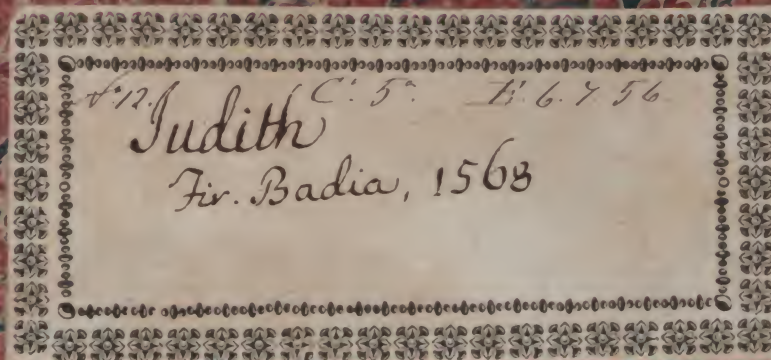 12. C. 5. 6. 7. 56
Judith
Fir. Badia, 1568